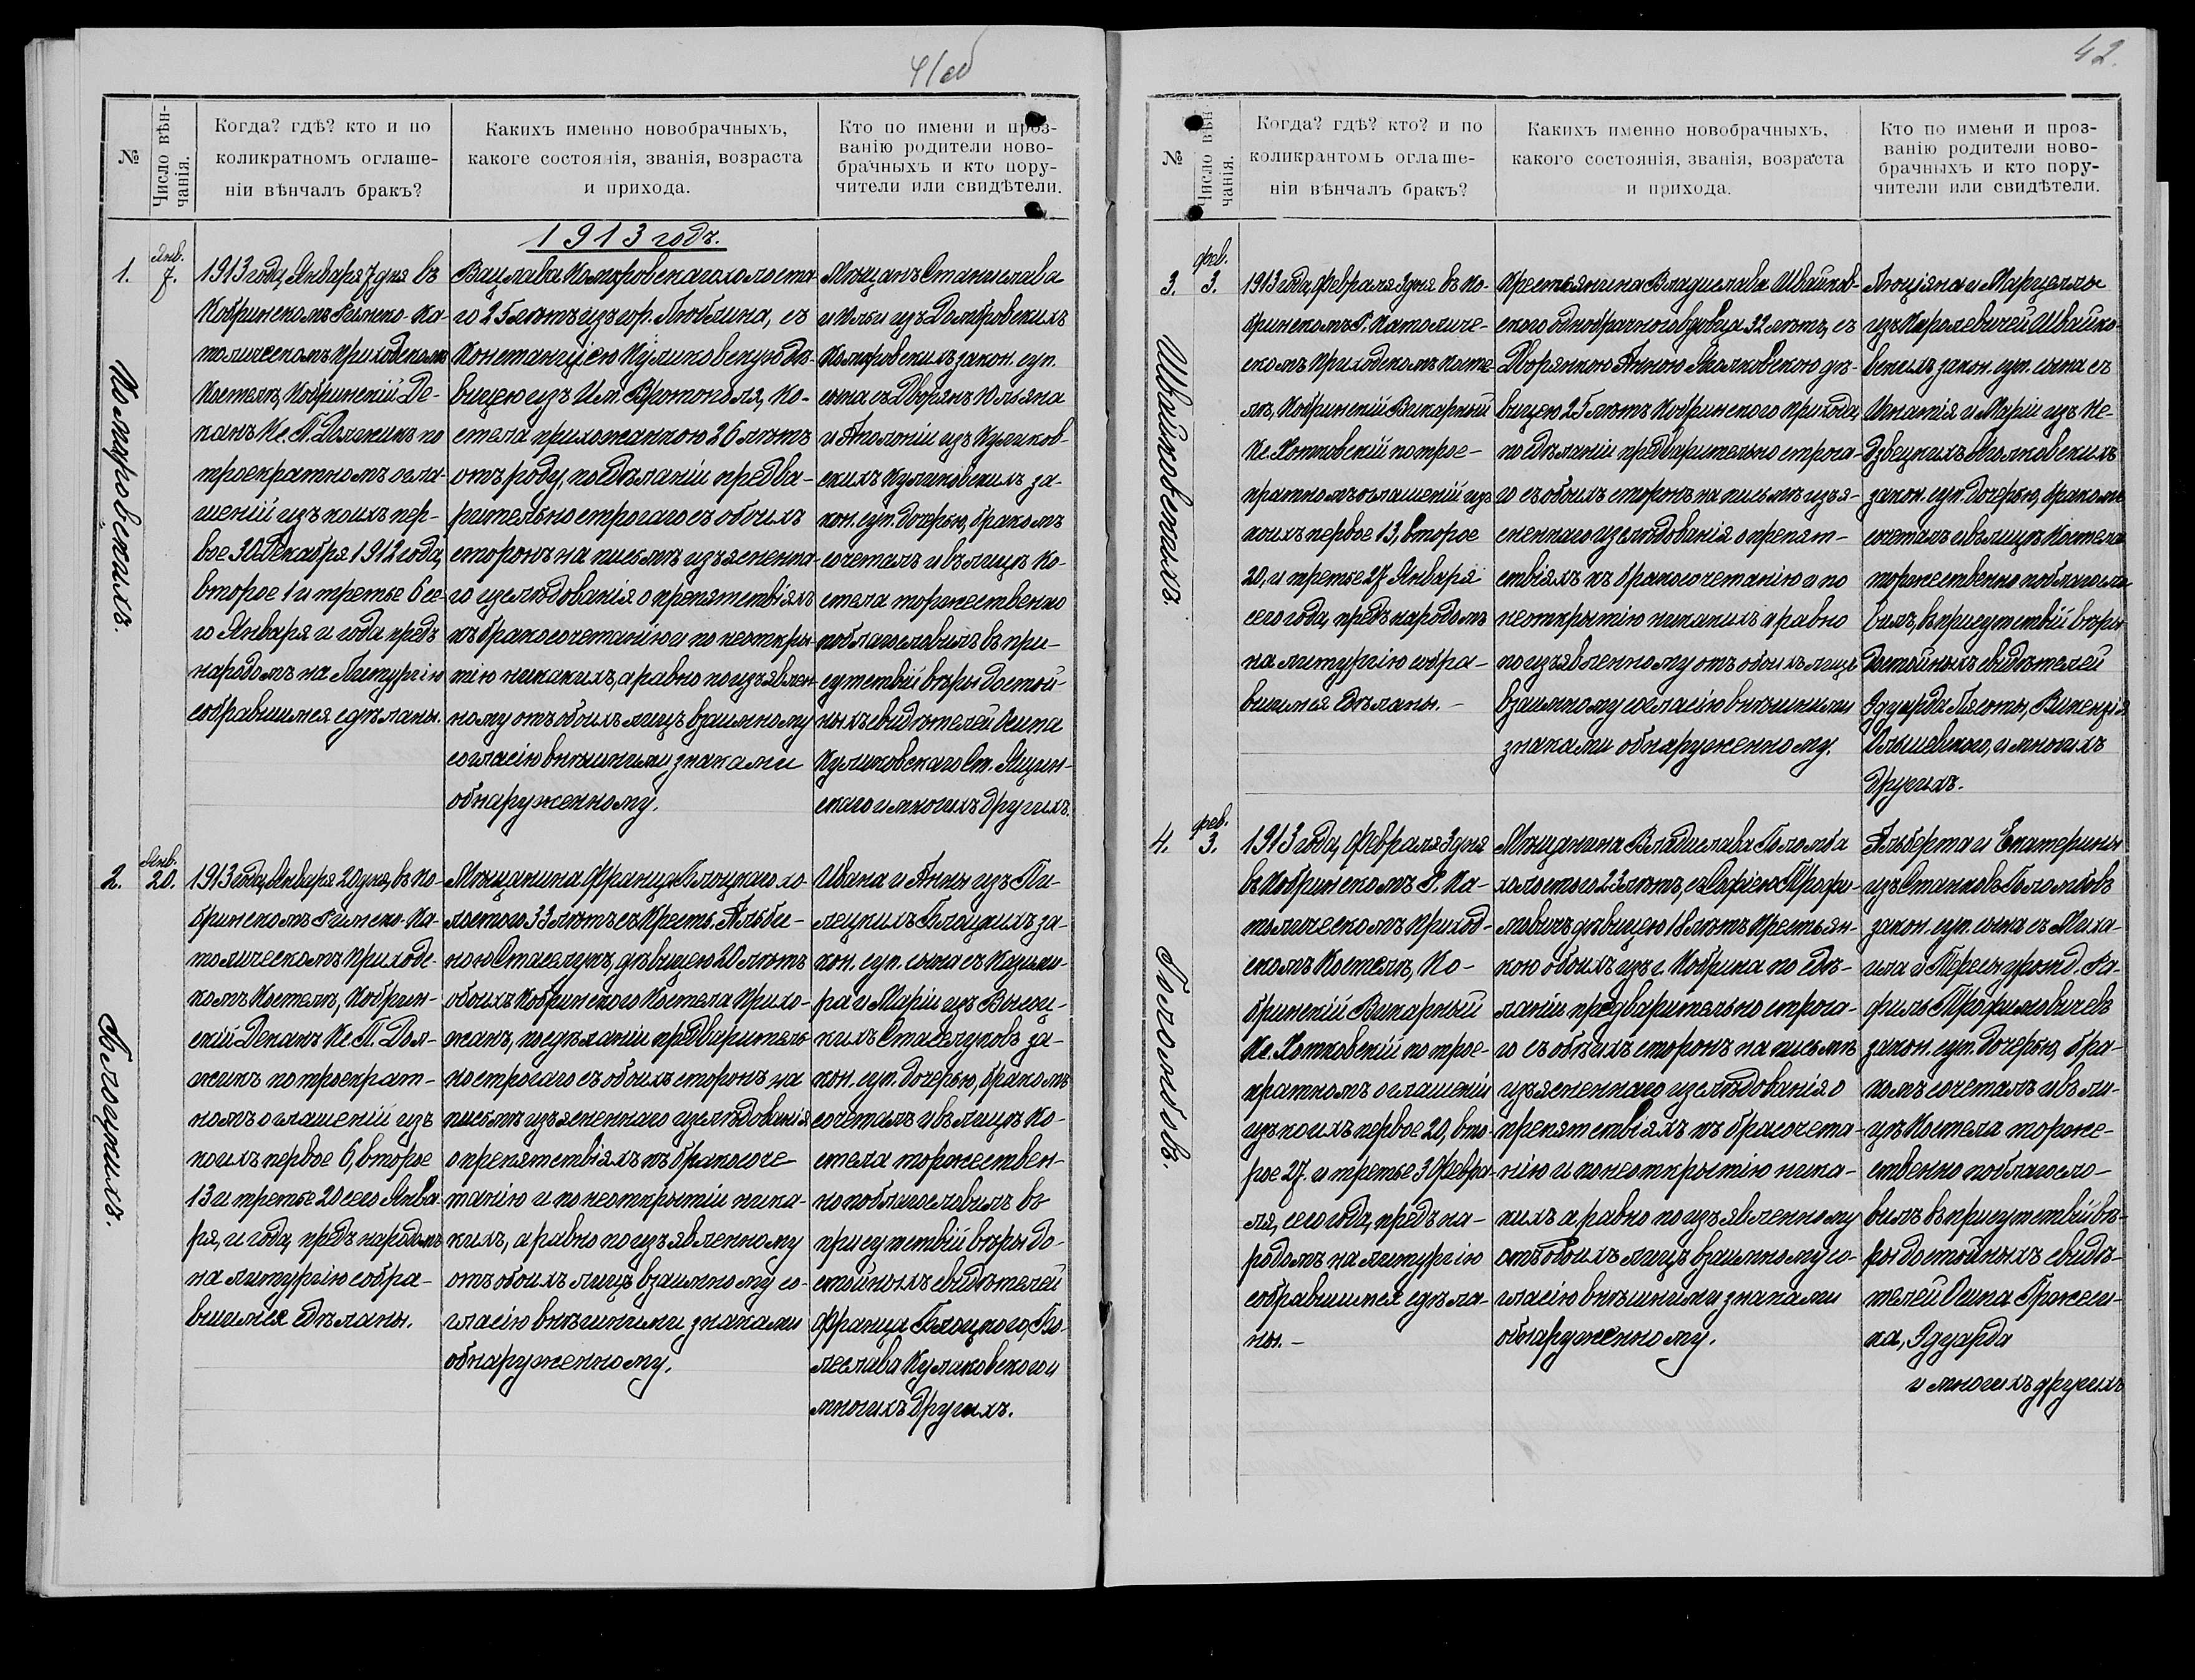 41об
№
Число вѣн-
чанія.
Когда? гдѣ? кто и по
коликратномъ оглаше-
ніи вѣнчалъ бракъ?
Какихъ именно новобрачныхъ,
какоге состоянія, званія, возраста
и прихода.
Кто по имени и проз-
ванію родители ново-
брачныхъ и кто пору-
чители или свидѣтели.
1913 годъ.
1.
Янв.
7.
Коморовскихъ.
1913 года, Января 7 дня въ
Кобринскомъ Римско-Ка-
толическомъ Приходскомъ
Костелѣ, Кобринскій Де-
канъ Кс. П. Должикъ по
троекратномъ огла-
шеній изъ коихъ пер-
вое 30 Декабря 1912 года,
второе 1 и третье 6 се-
го Января и года предъ
народомъ на Литургію
собравшимся сдѣланы.
Вацлава Коморовскаго холоста-
го 25 лѣтъ изъ гор. Люблина, съ
Констанціею Куликовскую дѣ-
вицею изъ Им. Вротополя, Ко-
стела прихожанкою 26 лѣтъ
отъ роду, по сдѣланіи предва-
рительно строгаго съ обоихъ
сторонъ на письмѣ изъясненна-
го изслѣдованія о препятствіяхъ
къ бракосочетанію и по неоткры-
тію никакихъ, а равно по изъявлен-
ному отъ обоихъ лицъ взаимному
согласію внѣшними знаками
обнаруженному.
Мѣщанъ Станислава
и Юліи изъ Домбровскихъ
Коморовскихъ закон. суп.
сына съ Дворянъ Юльяна
и Анелніи изъ Куликов-
скихъ Куликовскихъ за-
кон. суп. дочерью, бракомъ
сочеталъ и въ лицѣ Ко-
стела торжественно
поблагословилъ въ при-
сутствій вѣры достой-
ныхъ свидѣтелей Осипа
Куликовскаго Ст. Ящин-
скаго и многихъ другихъ.
2.
Янв.
20.
Блоцкихъ.
1913 года, Января 20 дня, въ Ко-
бринскомъ Римско-Ка-
толическомъ Приходс-
комъ Костелѣ, Кобрин-
скій Деканъ Кс. П. Дол-
жикъ по троекрат-
номъ оглашеній изъ
коихъ первое 6, второе
13 и третье 20 сего Янва-
ря, и года, предъ народомъ
на литургію собра-
вшимся сдѣланы.
Мѣщанина Франца Блоцкаго хо-
лостого 33 лѣтъ съ Кресть. Альби-
ною Стаселукъ, дѣвицею 20 лѣтъ
обоихъ Кобринского Костела Прихо-
жанъ, по сдѣланіи предваритель-
но строгаго съ обоихъ сторонъ на
письмѣ изъясненнаго изслѣдованія
о препятствіяхъ къ бракосоче
танію и по неоткрытіи ника-
кихъ, а равно по изъявленному
отъ обоихъ лицъ взаимному со-
гласію внѣшними знаками
обнаруженному.
Ивана и Анны изъ Пи-
лецкихъ Блоцкихъ за-
кон. суп. сына съ Казими-
ра и Маріи изъ Высоц-
кихъ Стаселуковъ за-
кон. суп. дочерью, бракомъ
сочеталъ и въ лицѣ Ко-
стела торжествен-
но поблагословилъ въ
присутствій вѣры до-
стойныхъ свидѣтелей
Франца Блоцкого, Бо-
леслава Куликовского и
многихъ Другихъ.
42.
№
Число вѣн-
чанія.
Когда? гдѣ? кто? и по
коликрантомъ оглаше-
ніи вѣнчалъ бракъ?
Какихъ именно новобрачныхъ,
какого состоянія, званія, возраста
и прихода.
Кто по имени и проз-
ванію родители ново-
брачныхъ и кто пору-
чители или свидѣтели.
3.
фев.
3.
Швайковскихъ.
1913 года, Февраля 3 дня въ Ко-
бринскомъ Р. Католиче-
скомъ Приходскомъ Косте-
лѣ, Кобринскій Викарный
Кс. Хотковскій по трое-
кратномъ оглашеній изъ
коихъ первое 13, второе
20, и третье 27 Января
сего года, предъ народомъ
на литургію собра-
вшимся сдѣланы.-
Крестьянина Владислава Швайков-
ского однобрачного вдовца 32 лѣтъ, съ
Дворянкою Анною Мялковскою дѣ-
вицею 25 лѣтъ Кобринского прихода,
по сдѣланіи предварительно строга-
го съ обоихъ сторонъ на письмѣ изъя-
сненнаго изслѣдованія о препят-
ствіяхъ къ бракосочетанію и по
неоткрытію никакихъ а равно
по изъявленному отъ обоихъ лицъ
взаимному согласію внѣшними
знаками обнаруженному.
Люціяна и Марцеллы
изъ Каролевичей Швайко-
вскихъ закон. суп. сына съ
Игнатія и Маріи изъ Не-
дзвецкихъ Мялковскихъ
закон. суп. Дочерью, бракомъ
сочеталъ и въ лицѣ Костела
торжественно поблагосло
вилъ, въ присутствій вѣры
Достойныхъ свидѣтелей
Эдуарда Лясоты, Викентія
Ольшевского, и многихъ
другихъ.
4.
фев.
3.
Голомбовъ.
1913 года, Февраля 3 дня
въ Кобринскомъ Р. Ка-
толическомъ Приход-
скомъ Костелѣ, Ко-
бринскій Викарный
Кс. Хотковскій по трое-
кратномъ оглашеніи
изъ коихъ первое 20, вто-
рое 27. и третье 3 Февра-
ля, сего года, предъ на-
родомъ на литургію
собравшимся сдѣла-
ны.-
Мѣщанина Владислава Голомба
холостого 23 лѣтъ, съ Софіею Трофи-
мовичъ дѣвицею 18 лѣтъ Крестьян-
кою обоихъ изъ г. Кобрина по сдѣ-
ланіи предварительно строга-
го съ обоихъ сторонъ на письмѣ
изъясненнаго изслѣдованія о
препятствіяхъ къ брасочета-
нію и по неоткрытію ника-
кихъ а равно по изъявленному
отъ обоихъ лицъ взаимному со-
гласію внѣшними знаками
обнаруженному.
Альберта и Екатерины
изъ Станковъ Голомбовъ
закон. суп. сына съ Миха-
ила и Тересы урожд. Ка-
филь Трофимовичевъ
закон. суп. дочерью, бра-
комъ сочеталъ и въ ли-
цѣ Костела торже-
ственно поблагосло-
вилъ въ присутствій вѣ-
ры достойныхъ свидѣ-
телей Осипа Гржеш-
ка, Эдуарда
и многихъ другихъ